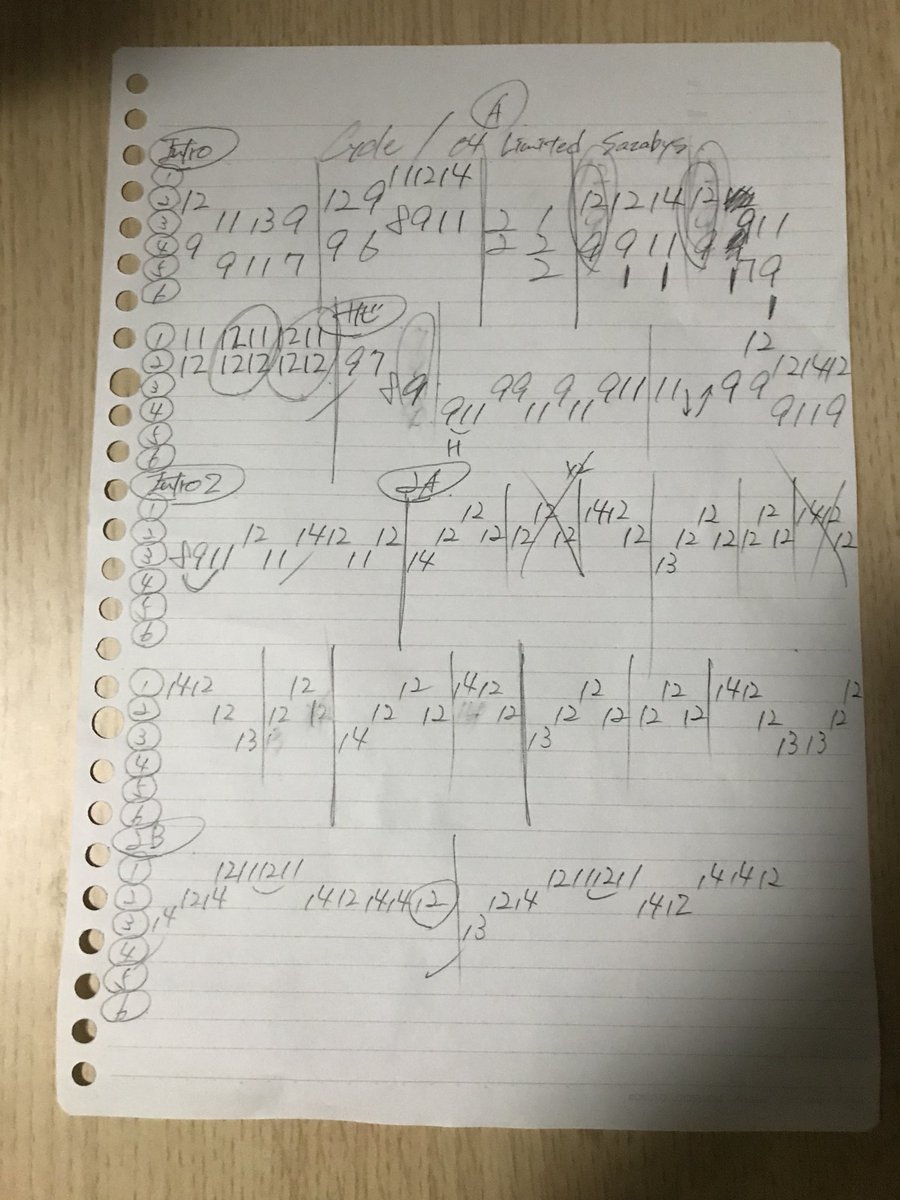 A
Intro Cycle / 04 Limited Sazabys
① 11 12 14
② 12 12 9 12 12 14 12
③ 11 13 9 8 9 11 2 1 9 11
④ 9 9 6 2 2 9 9 11 9
⑤ 9 11 7 2 1 1 1 7 9
⑥ 1
サビ
① 11 12 11 12 11 12
② 12 12 12 12 12 9 7 12 14 12
③ 8 9 9 9 9 9 11 11 9 9
④ 9 11 11 11 9 11 9
⑤
⑥
H
Intro2 2A
① 12 12 14 12 12 12 14 12
② 12 14 12 12 12 12 12 12 12 12 12 12 12 12
③ 8 9 11 11 11 14 13
④
⑤
⑥
① 14 12 12 12 14 12 12 12 14 12 12
② 12 12 12 12 12 12 12 12 12 12 12 12
③ 13 14 13 13 13
④
⑤
⑥
2B
① 12 11 12 11 12 11 12 11 14 14 12
② 12 14 14 12 14 14 12 12 14 14 12
③ 14 13
④
⑤
⑥